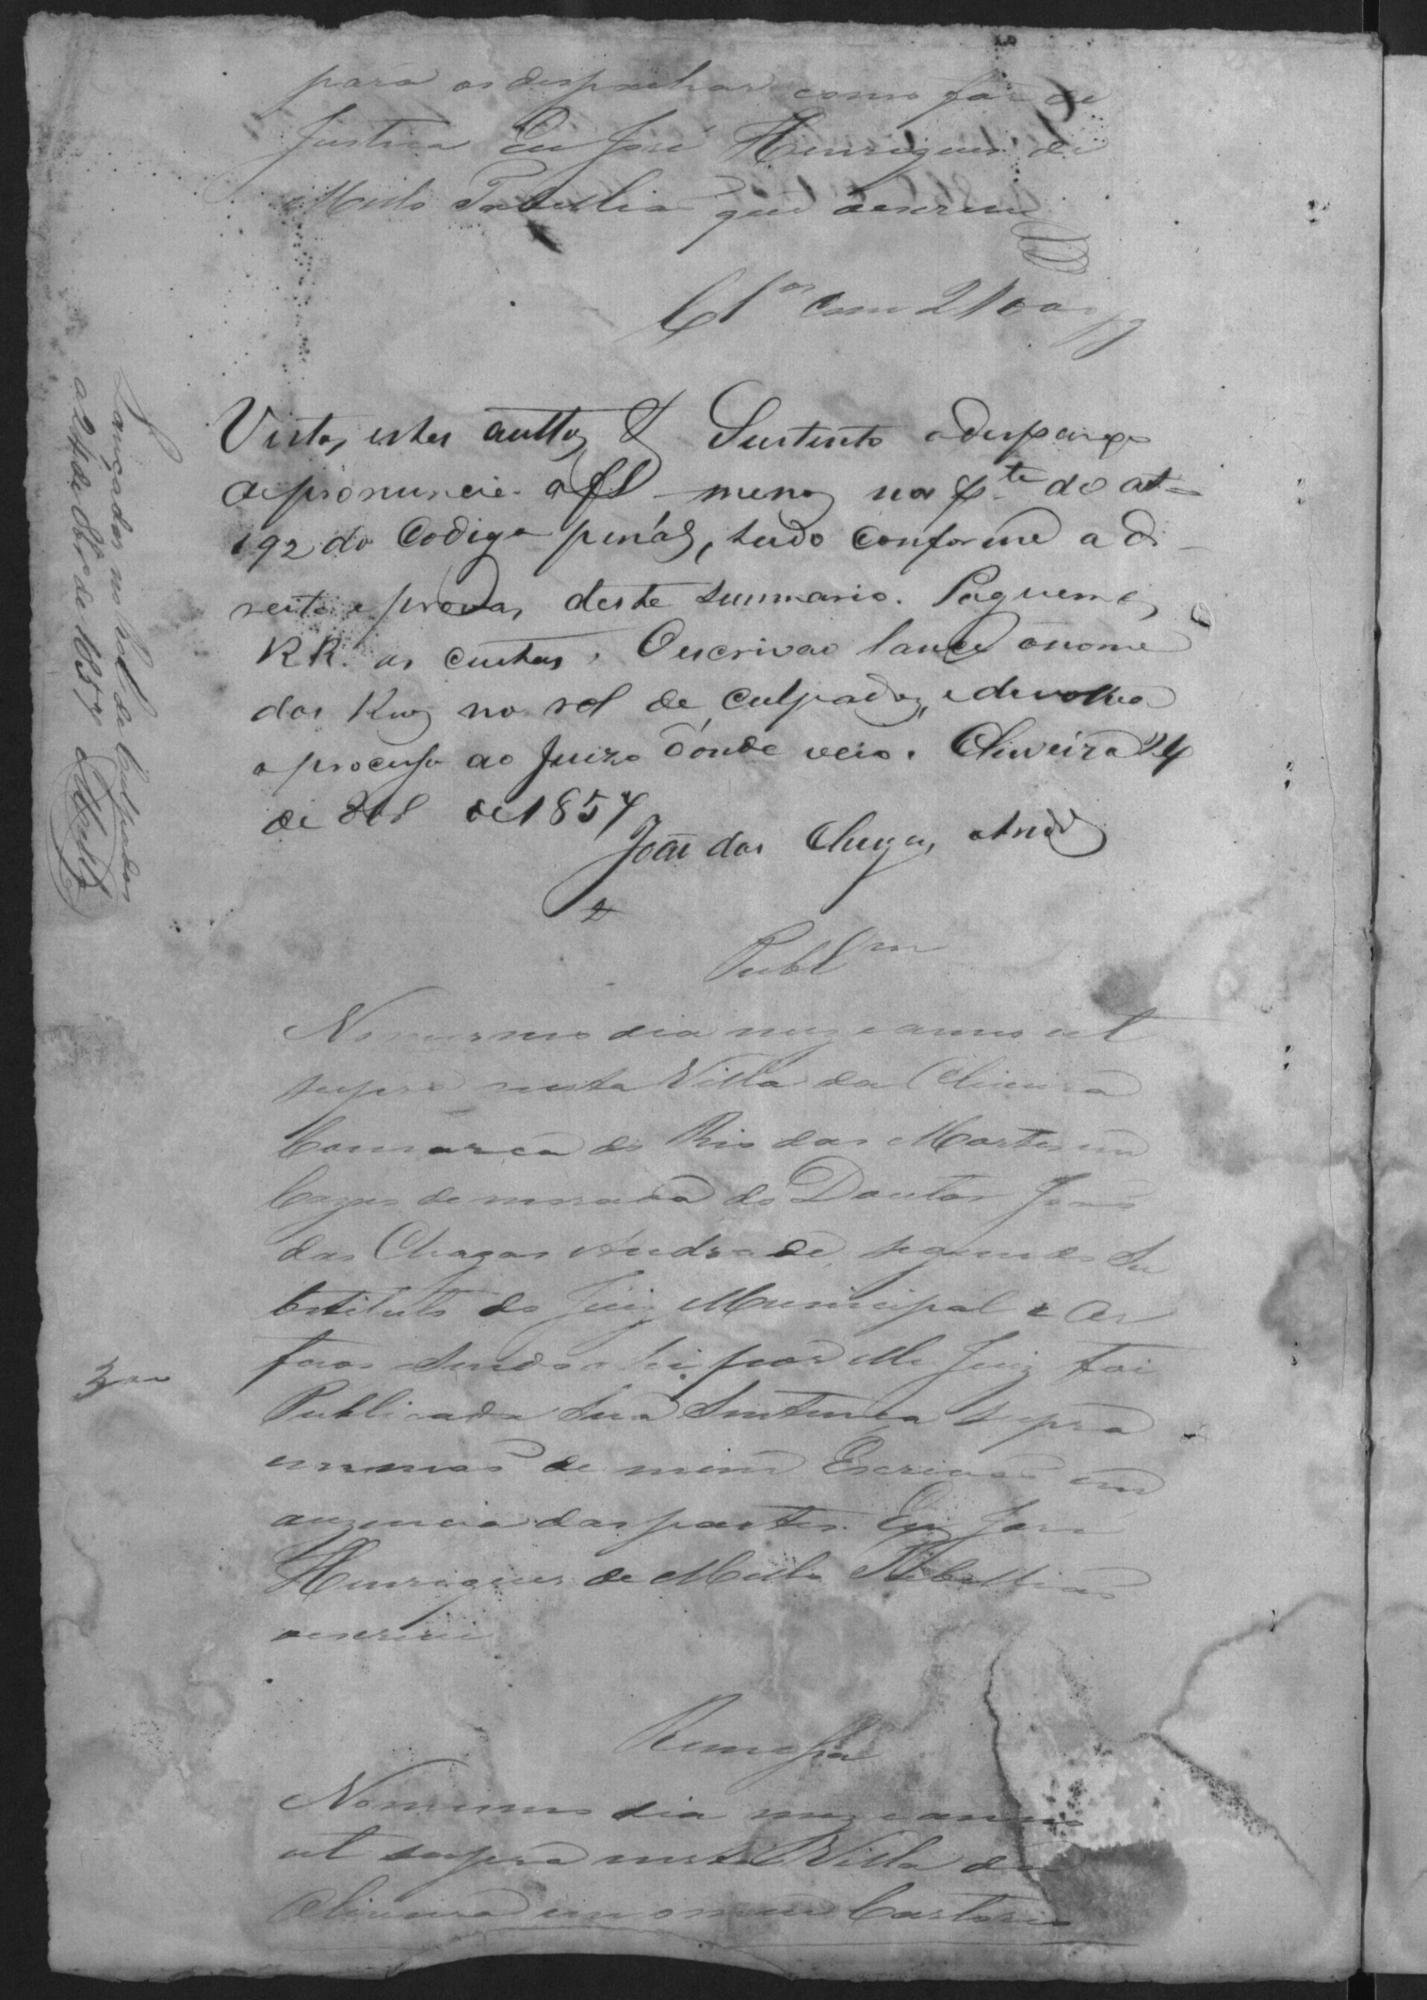 para os despachar como for de
Justiça Eu José Henriques de
Mello Tabelliaõ que o escrevi
Cl.os com 2100
Vistos, estes auttos & Sustento o despaxo
de pronuncia a fl menos na p.te do art=
192 do Codigo penal, tudo conforme a di-
reito e provas, deste summario. Paguem os
RR. as custas. O escrivaõ lance o nome
dos Reos no rol de culpados, e devolva
o processo ao Juizo donde veio. Oliveira 24
de de 1857
Joaõ das Chagas Andr.e
Publ.am
No mesmo dia mez e anno ut
supra nesta Villa da Oliveira
Comarca do Rio das Mortes em
Cazas de morada do Doutor Joaõ
das Chagas Andrade, segundo Su
bstituto do Juiz Municipal e Or
faos sendo ahi por elle Juiz foi
Publicada sua Sentença supra
em maõ de mim Escrivaõ em
auzencia das partes. Eu José
Henriques de Mello Tabelliaõ
o escrevi
Remessa
No mesmo dia mez e anno
ut supra nesta Villa da
Oliveira em o meu Cartorio
Lançados no Rol de Culpados
a 24 de de 1857 Mello